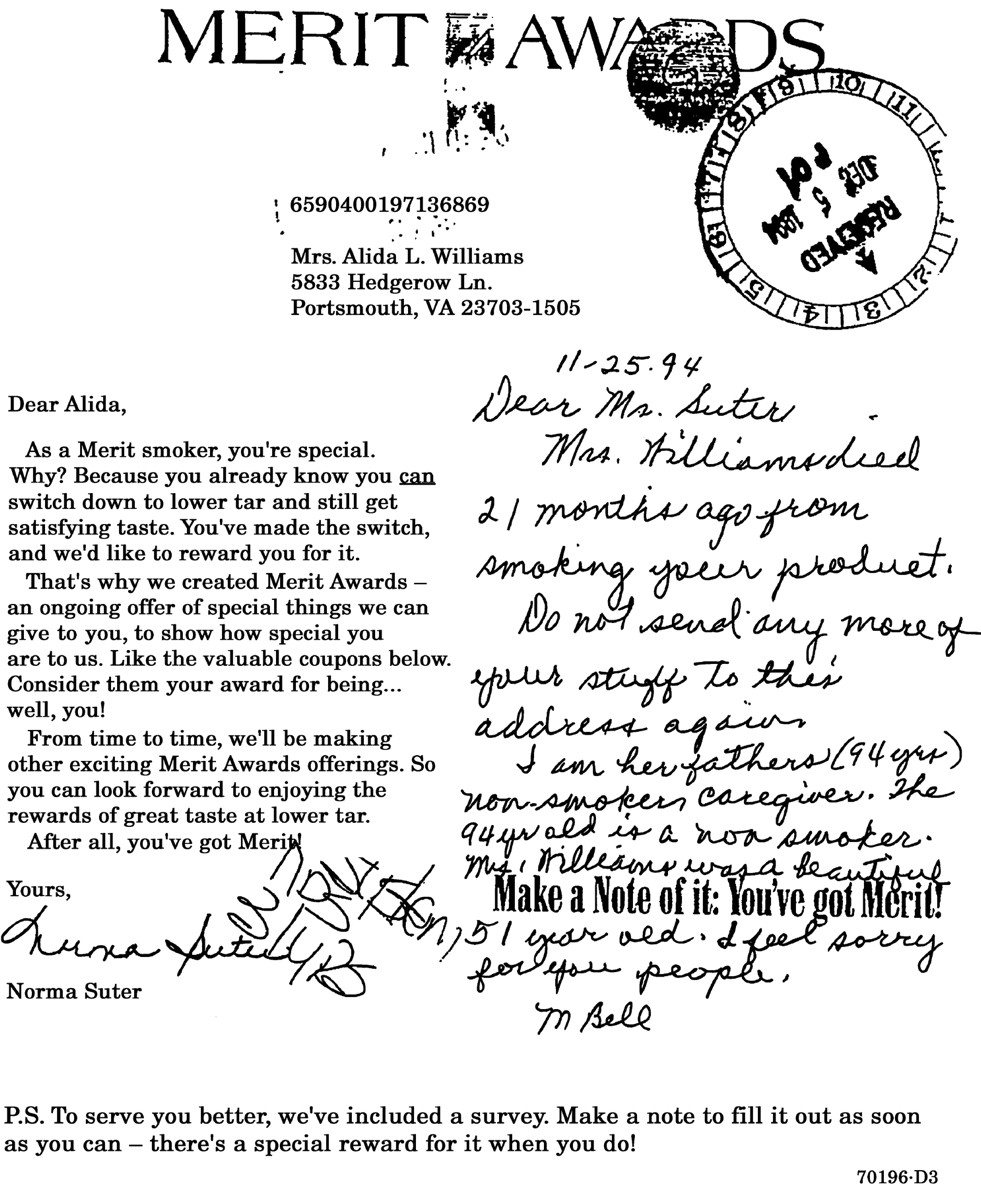 MERIT AWARDS
9 10 11
8
7
6
5 4 3 2 1
P01
DEC 5 1994
RECEIVED
6590400197136869
Mrs. Alida L. Williams
5833 Hedgerow Ln.
Portsmouth, VA 23703-1505
Dear Alida,
As a Merit smoker, you're special.
Why? Because you already know you can
switch down to lower tar and still get
satisfying taste. You've made the switch,
and we'd like to reward you for it.
That's why we created Merit Awards –
an ongoing offer of special things we can
give to you, to show how special you
are to us. Like the valuable coupons below.
Consider them your award for being...
well, you!
From time to time, we'll be making
other exciting Merit Awards offerings. So
you can look forward to enjoying the
rewards of great taste at lower tar.
After all, you've got Merit!
Yours,
Norma Suter
Norma Suter
11-25.94
Dear Ms. Suter
Mrs. Williams died
21 months ago from
smoking your product.
Do not send any more of
your stuff to this
address again.
I am her fathers (94 yrs)
non-smoker, caregiver. The
94 yr old is a non smoker.
Mrs. Williams was a beautiful
Make a Note of it: You've got Merit!
51 year old. I feel sorry
for you people.
M Bell
P.S. To serve you better, we've included a survey. Make a note to fill it out as soon
as you can – there's a special reward for it when you do!
70196-D3